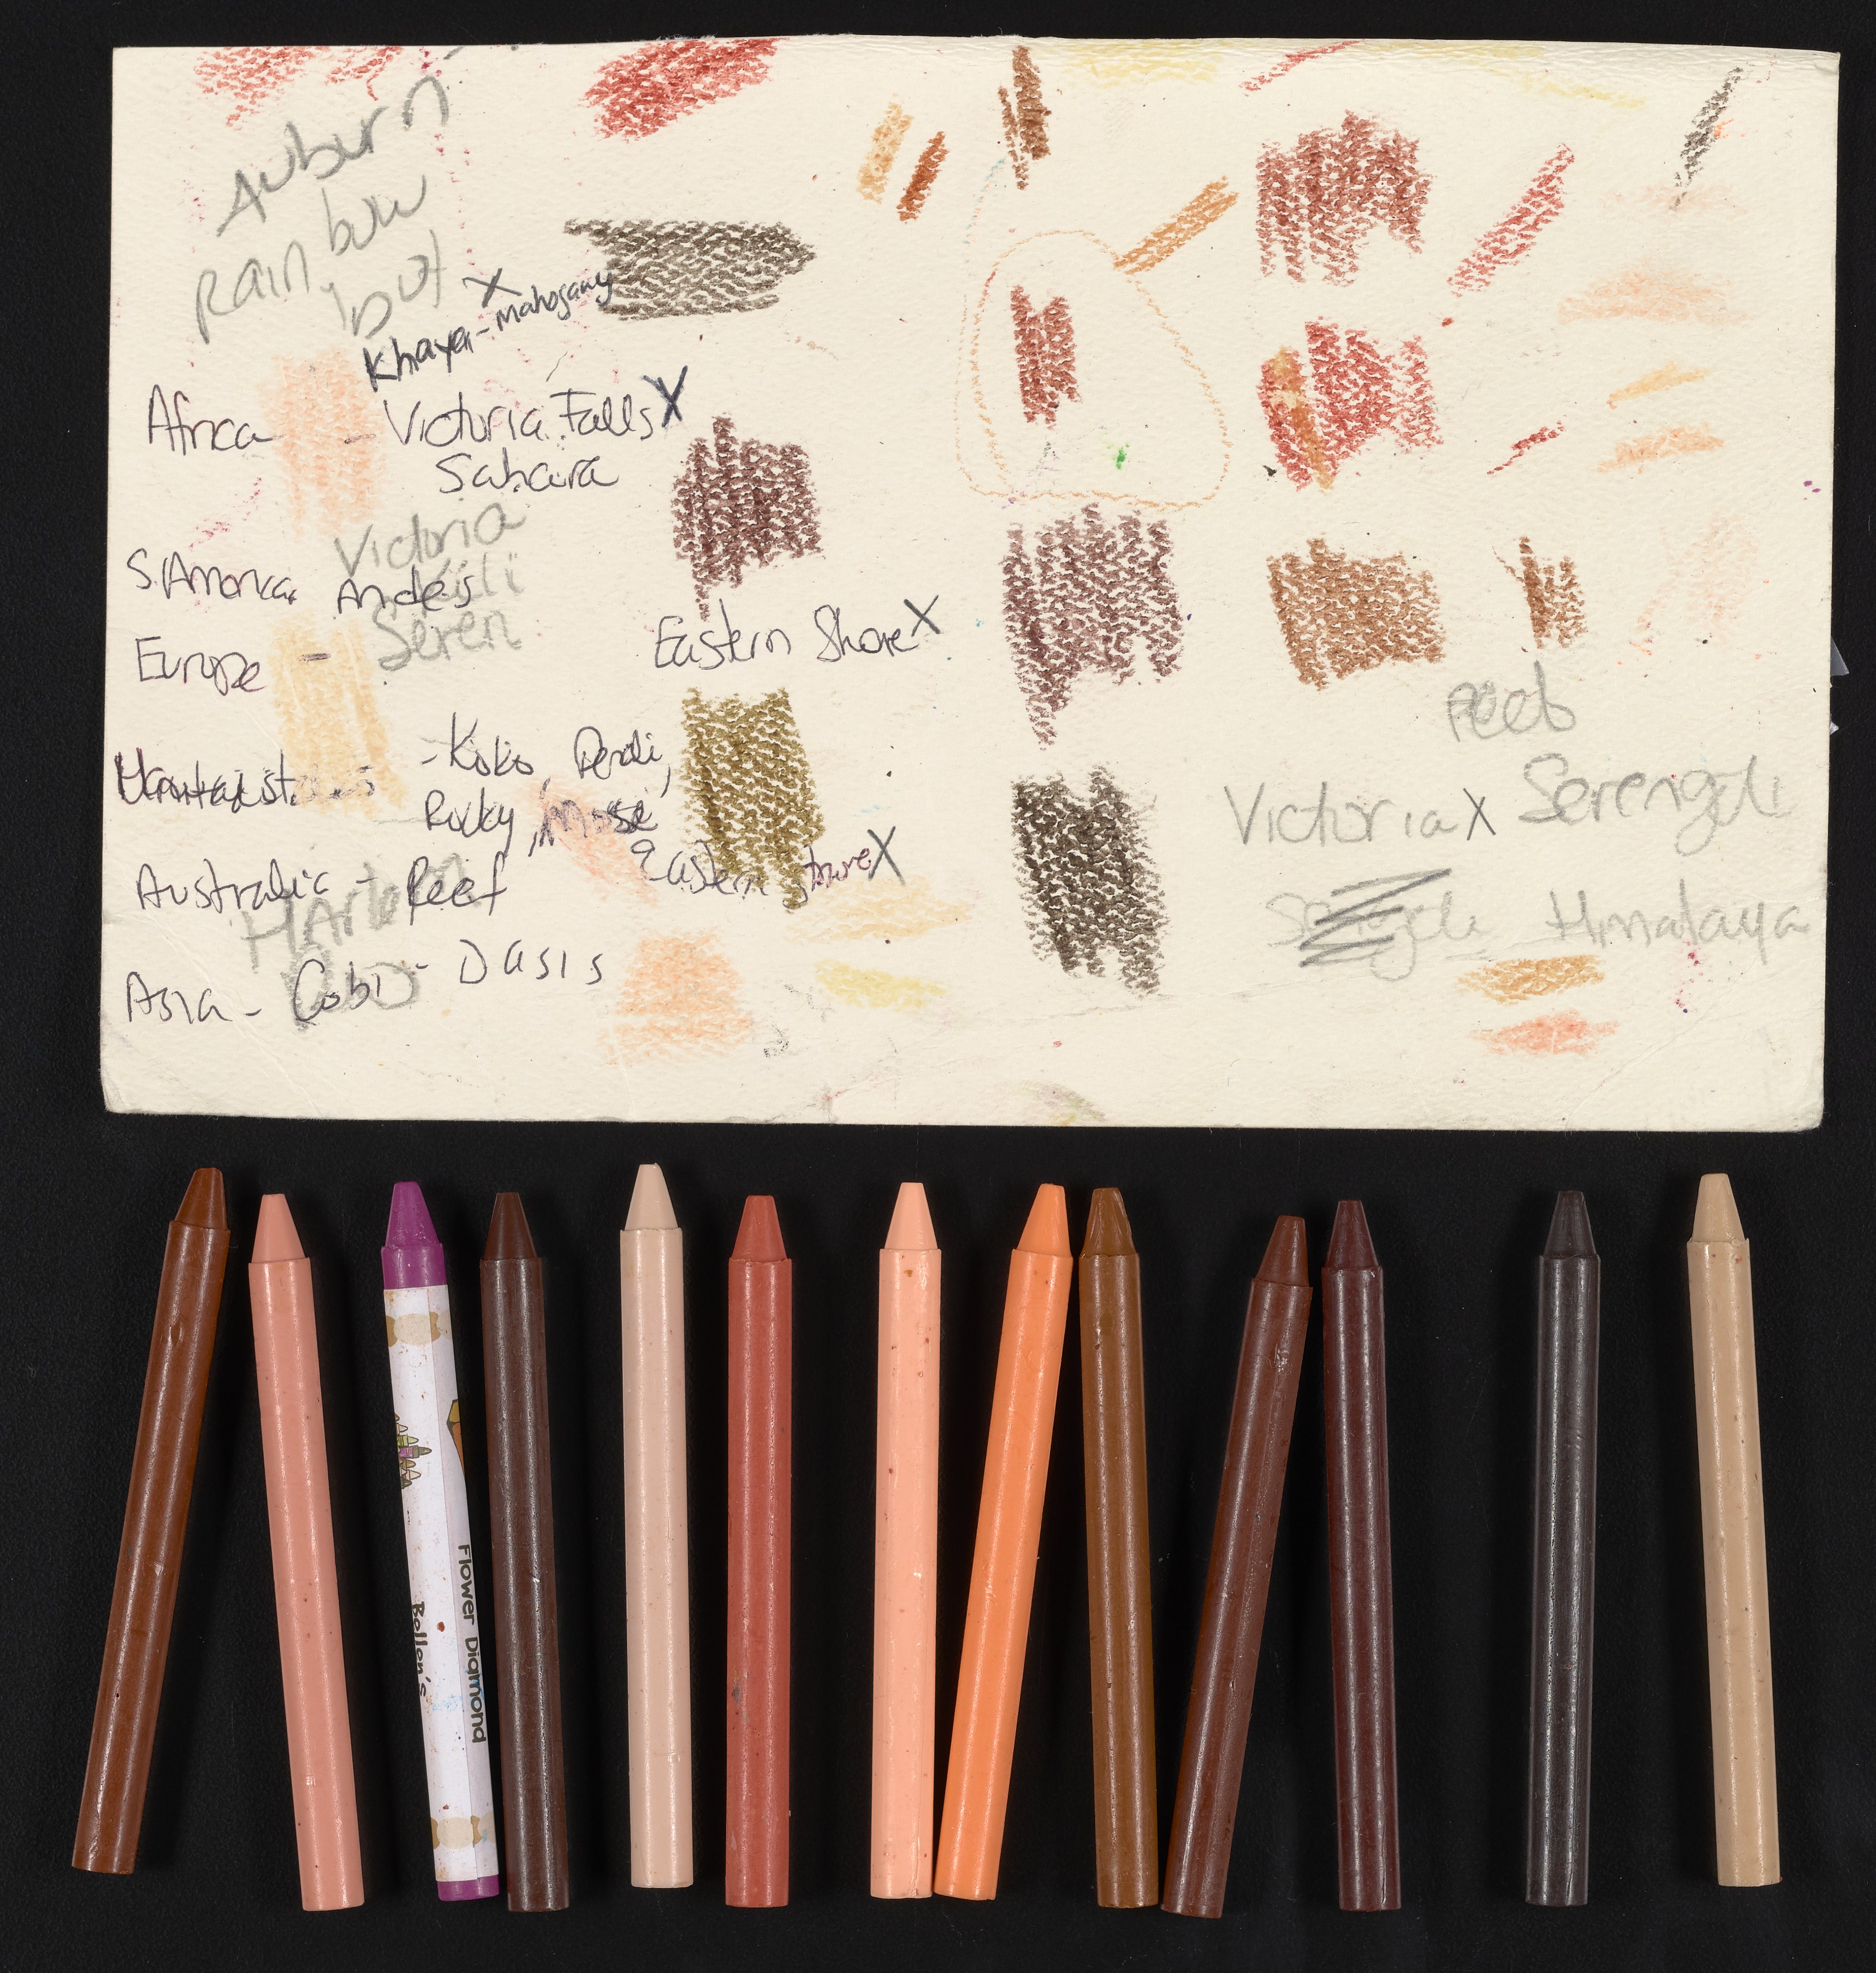 Auburn
Rainbow
but
X
Khaya - Mahogany
Africa - Victoria Falls X
Sahara
Victoria
S. America Andes
Seren
Europe -
Eastern Shore X
- Koko, Denali,
Rocky,
Eastern Shore X
Australia - Reef
Harlem
Asia - Gobi - Oasis
Reef
Victoria X Serengeti
Himalaya
Flower Diamond
Bellen's